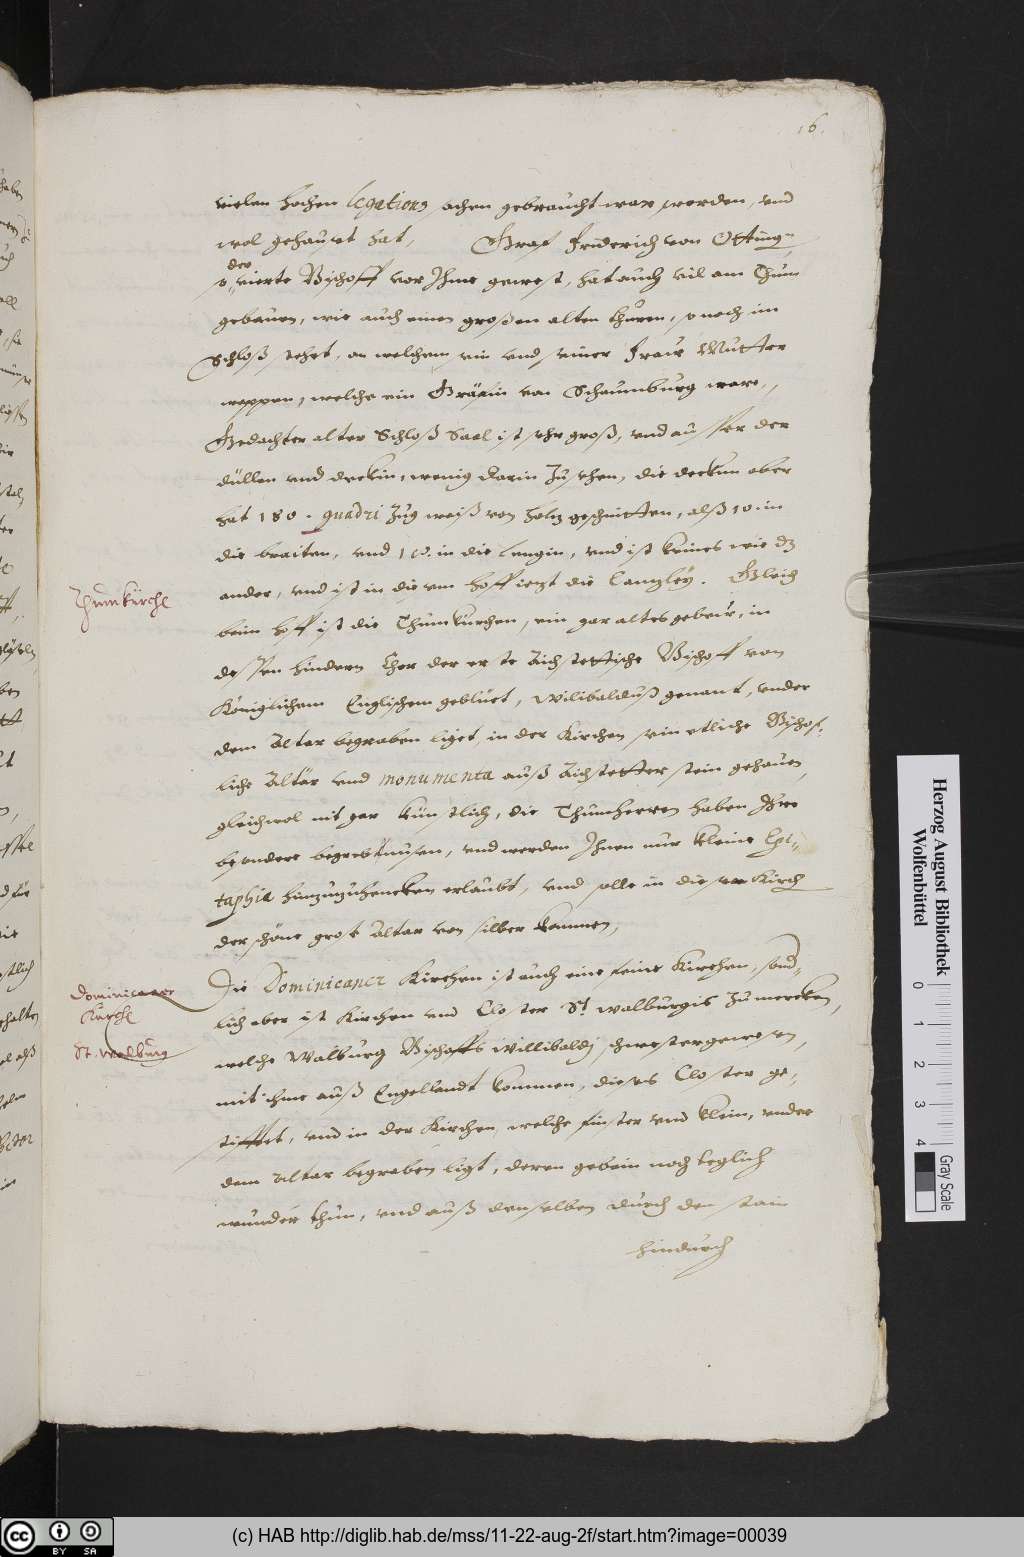 16.
vielen hochen legations sachen gebraucht war worden, vnd
wol gehaust hat, Graf Friderich von Otting=
der
so vierte Bischoff vor Ihme gewest, hat auch vil am Thum
gebauen, wie auch einen großen alten thuren, so noch im
Schloß stehet, an welchem sein vnd seiner Fraw Mutter
wappen, welche ein Gräfin von Schaumburg ware,
Gedachter alter Schloß Saal ist sehr groß, vnd ausser der
düllen vnd deckin, wenig darin zu sehen, die deckin aber
hat 180. quadri zug weiß von holz geschnitten, alß 10. in
die braiten, vnd 18. in die lengin, vnd ist keines wie dz
ander, vnd ist in diesem hoff iezt die Canzley. Gleich
beim hoff ist die Thumkürchen, ein gar altes gebeür, in
dessen hindern Chor der erste Aichstettische Bischoff von
Königlichem Englischem geblüet, Wilibalduß genant, vnder
dem Altar begraben liget, in der Kirchen sein etliche Bischof=
liche Altär vnd monumenta auß Aichstetter stein gehauen,
gleichwol nit gar künstlich, die Thumherren haben Ihre
besondere begrebnusen, vnd werden Ihnen nur kleine Epi=
taphia hinzuzuhencken erlaubt, vnd solle in diese Kirch
der schöne große Altar von silber kommen,
Die Dominicaner Kirchen ist auch eine feine Kirchen, sond=
lich aber ist Kirchen vnd Closter St. Walburgis zu mercken,
welche Walburg Bischoffs Willibaldj schwester gewesen,
mit ihme auß Engellandt kommen, dieses Closter ge=
stifftet, vnd in der Kirchen, welche finster vnd klein, vnder
dem Altar begraben ligt, deren gebein noch teglich
wunder thun, vnd auß denselben durch den stain
hindurch
Thumkürche
Dominicaner
Kürche
St. Walburg
Herzog August Bibliothek
Wolfenbüttel
0 1 2 3 4
Gray Scale
cc BY SA
(c) HAB http://diglib.hab.de/mss/11-22-aug-2f/start.htm?image=00039